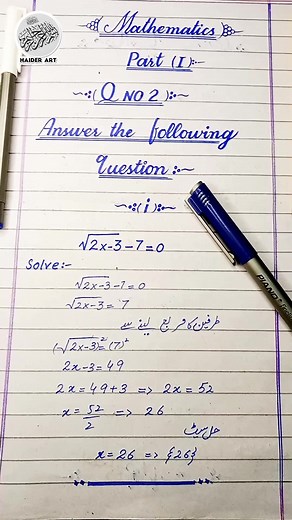 HAIDER ART
Mathematics
Part (I)
(Q NO 2):~
Answer the following
question:~
(i):~
√2x-3-7=0
Solve:-
√2x-3-7=0
√2x-3=7
طرفین کا مربع لینے سے
(√2x-3)²=(7)²
2x-3=49
2x=49+3 => 2x=52
x=52/2 => 26
حل سیٹ
x=26 => {26}
PIANO